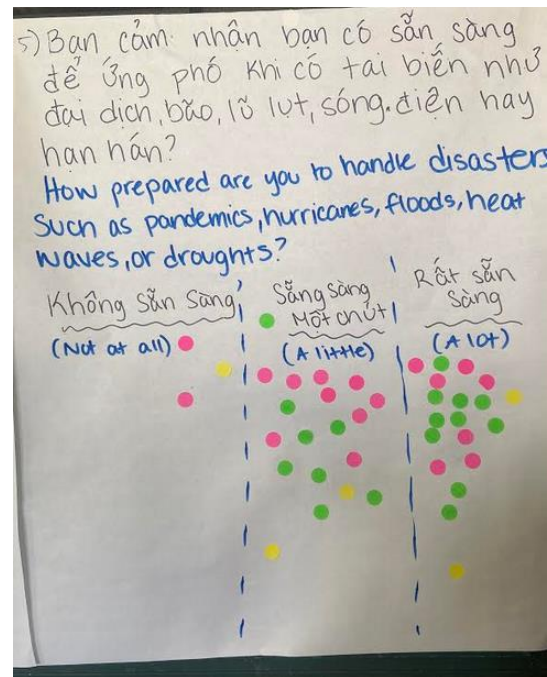 5) Bạn cảm nhận bạn có sẵn sàng
để ứng phó khi có tai biến như
đại dịch, bão, lũ lụt, sóng điện hay
hạn hán?
How prepared are you to handle disasters
such as pandemics, hurricanes, floods, heat
waves, or droughts?
Không Sẵn Sàng
(Not at all)
Sẵng sàng
Một chút
(A little)
Rất sẵn
sàng
(A lot)